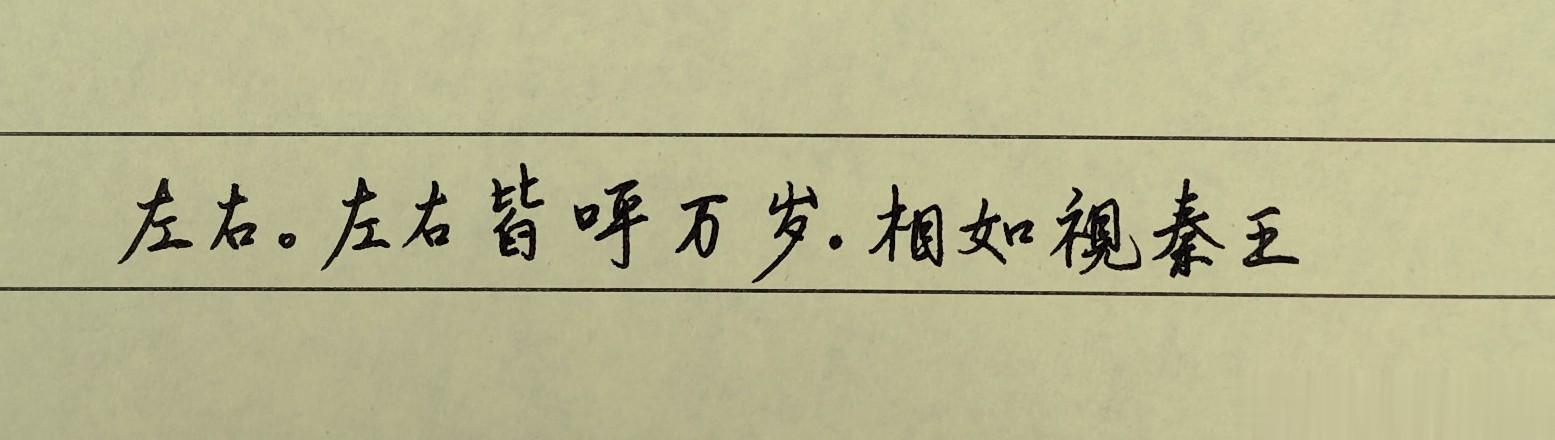 左右。左右皆呼万岁.相如視秦王